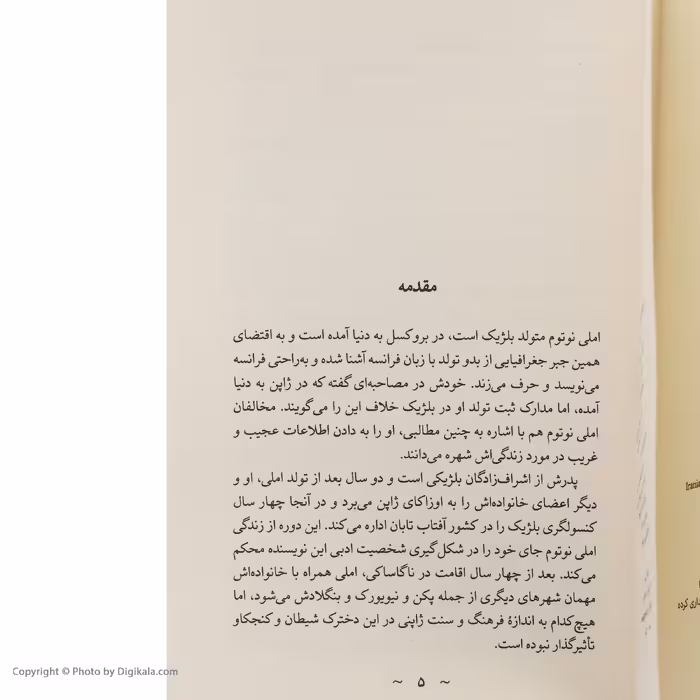 مقدمه
املی نوتوم متولد بلژیک است، در بروکسل به دنیا آمده است و به اقتضای
همین جبر جغرافیایی از بدو تولد با زبان فرانسه آشنا شده و به‌راحتی فرانسه
می‌نویسد و حرف می‌زند. خودش در مصاحبه‌ای گفته که در ژاپن به دنیا
آمده، اما مدارک ثبت تولد او در بلژیک خلاف این را می‌گویند. مخالفان
املی نوتوم هم با اشاره به چنین مطالبی، او را به دادن اطلاعات عجیب و
غریب در مورد زندگی‌اش شهره می‌دانند.
پدرش از اشراف‌زادگان بلژیکی است و دو سال بعد از تولد املی، او و
دیگر اعضای خانواده‌اش را به اوزاکای ژاپن می‌برد و در آنجا چهار سال
کنسولگری بلژیک را در کشور آفتاب تابان اداره می‌کند. این دوره از زندگی
املی نوتوم جای خود را در شکل‌گیری شخصیت ادبی این نویسنده محکم
می‌کند. بعد از چهار سال اقامت در ناگاساکی، املی همراه با خانواده‌اش
مهمان شهرهای دیگری از جمله پکن و نیویورک و بنگلادش می‌شود، اما
هیچ‌کدام به اندازهٔ فرهنگ و سنت ژاپنی در این دخترک شیطان و کنجکاو
تأثیرگذار نبوده است.
~ ۵ ~
Copyright © Photo by Digikala.com